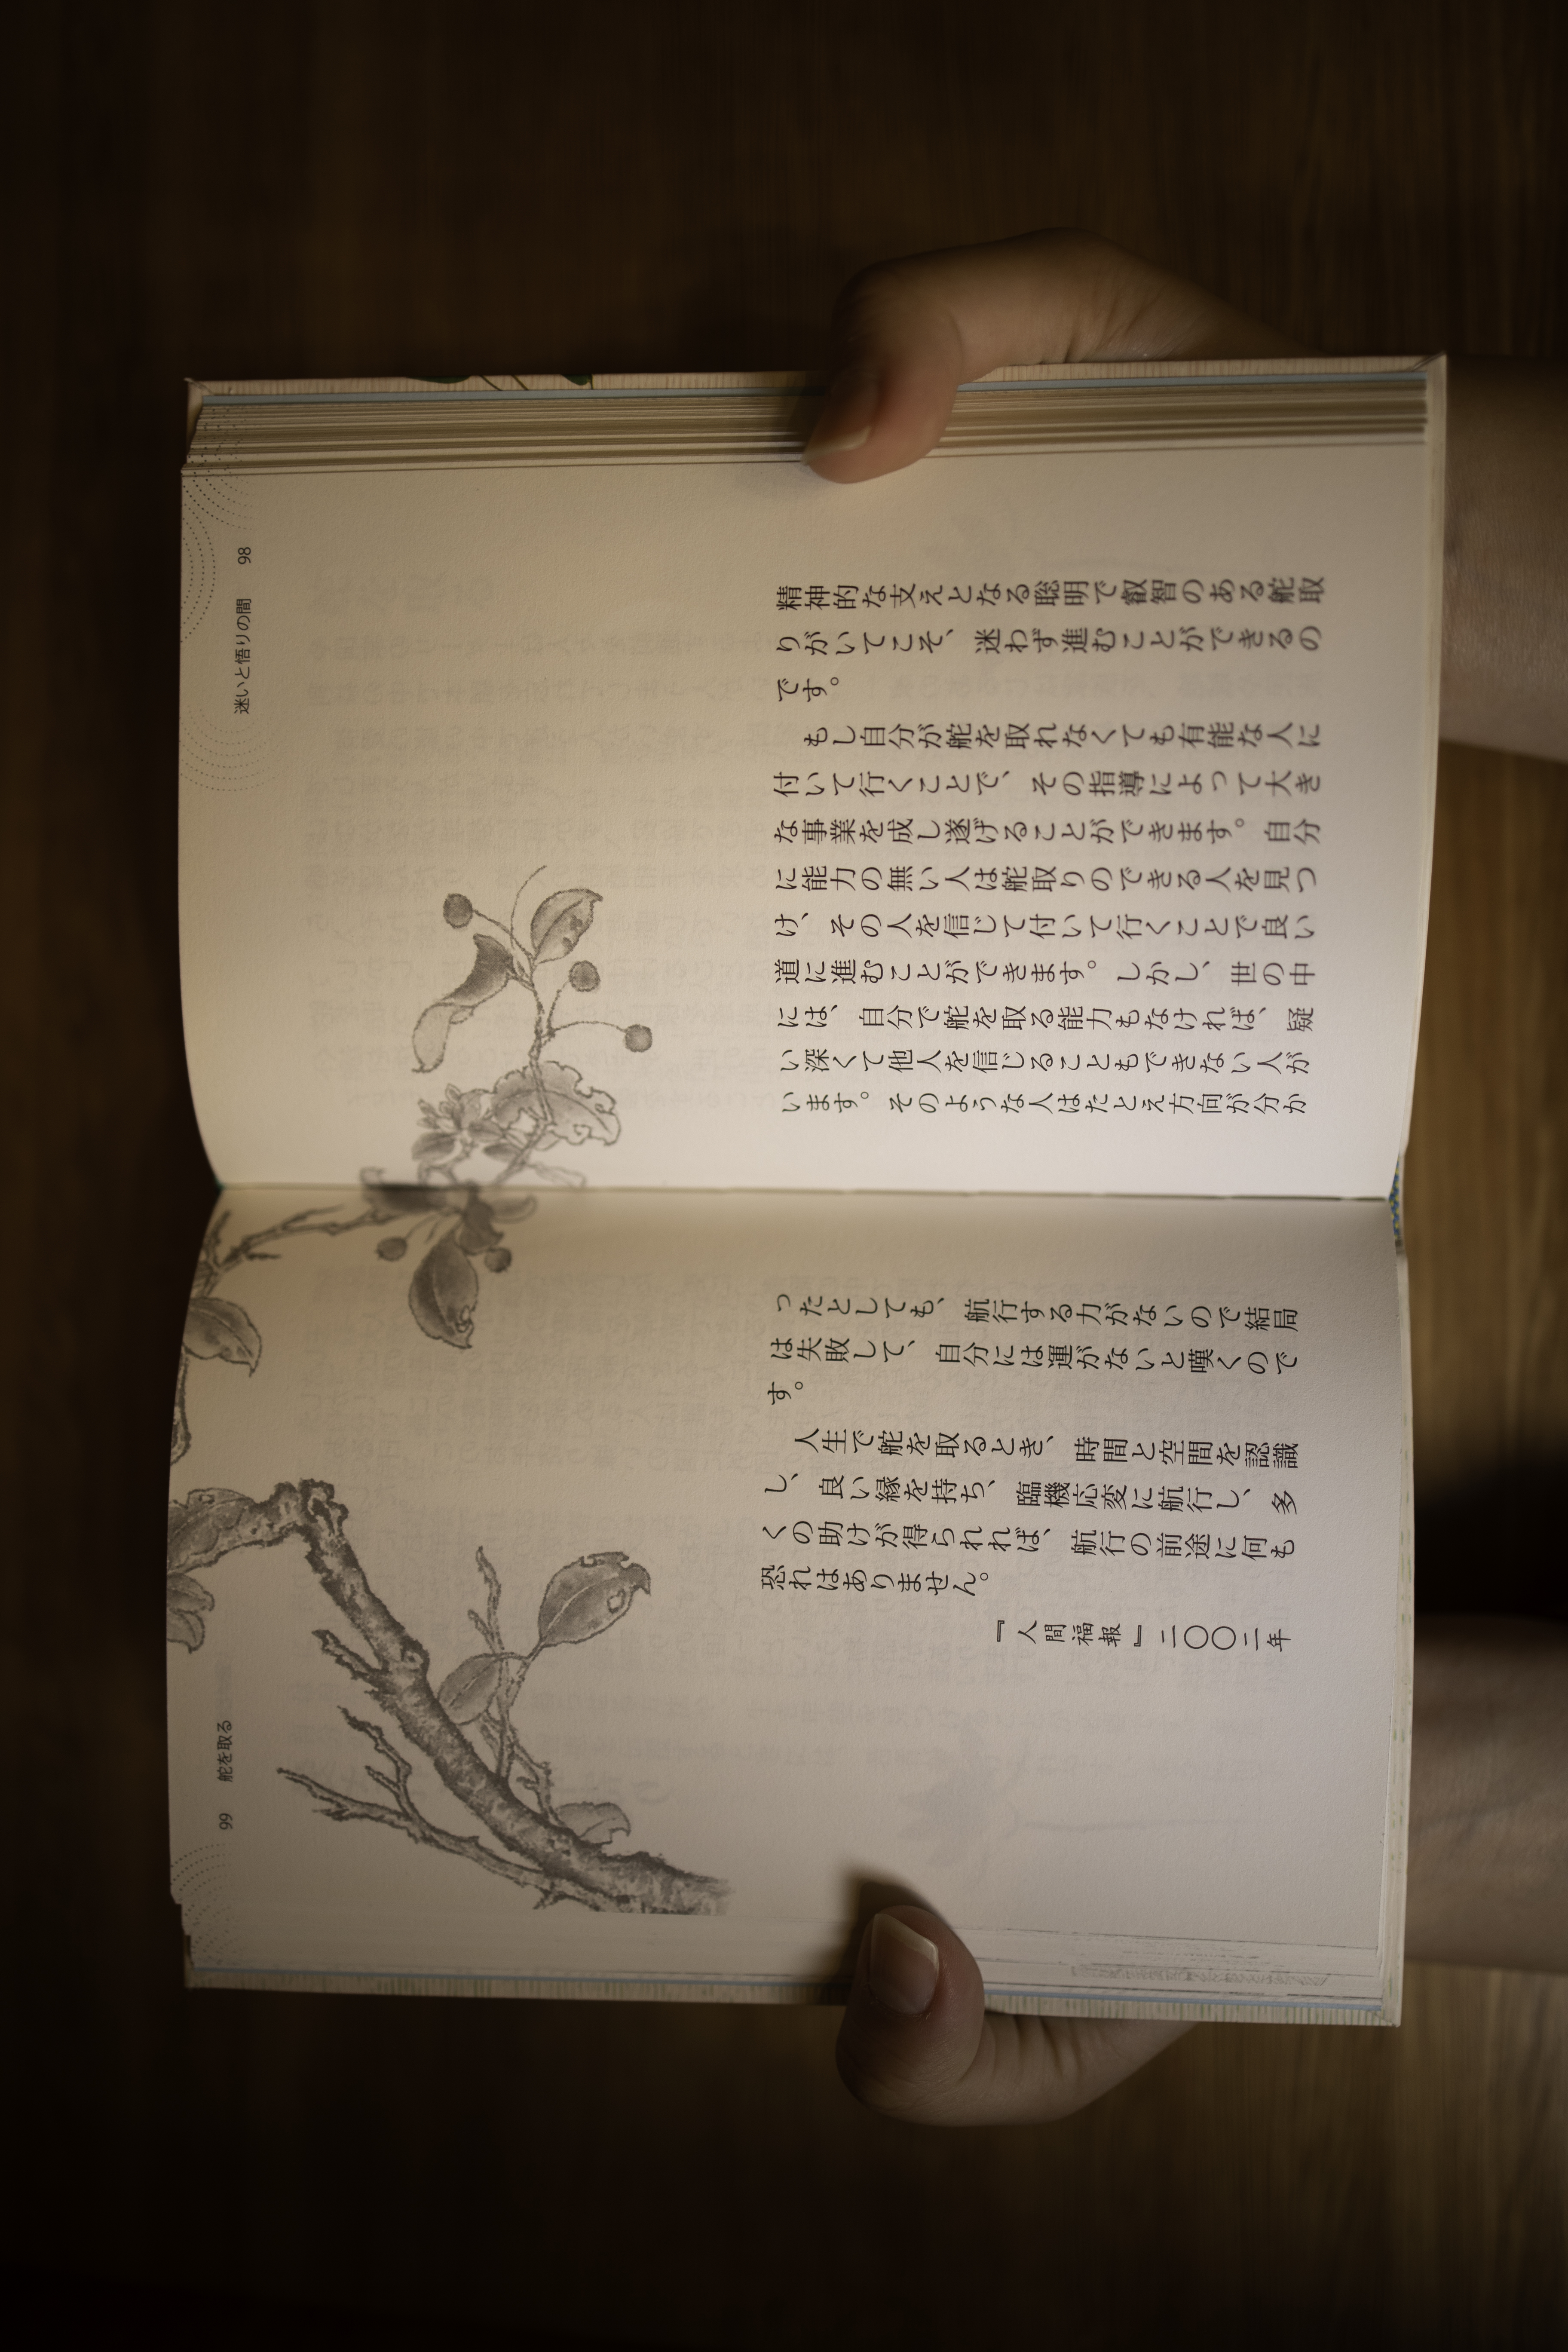 精神的な支えとなる聡明で叡智のある舵取
りがいてこそ、迷わず進むことができるの
です。
もし自分が舵を取れなくても有能な人に
付いて行くことで、その指導によって大き
な事業を成し遂げることができます。自分
に能力の無い人は舵取りのできる人を見つ
け、その人を信じて付いて行くことで良い
道に進むことができます。しかし、世の中
には、自分で舵を取る能力もなければ、疑
い深くて他人を信じることもできない人が
います。そのような人はたとえ方向が分か
迷いと悟りの間 98
ったとしても、航行する力がないので結局
は失敗して、自分には運がないと嘆くので
す。
人生で舵を取るとき、時間と空間を認識
し、良い縁を持ち、臨機応変に航行し、多
くの助けが得られれば、航行の前途に何も
恐れはありません。
『人間福報』二〇〇二年
99 舵を取る